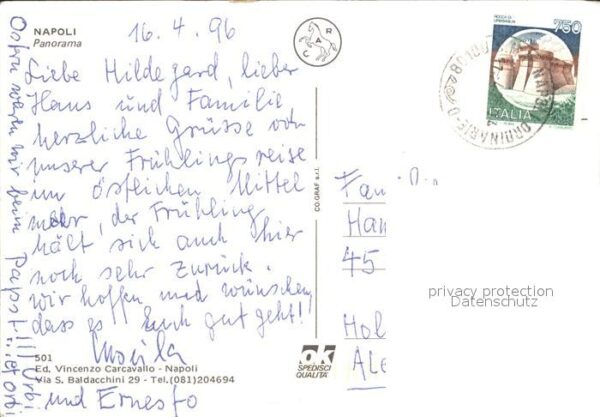 NAPOLI
Panorama
16. 4. 96
Liebe Hildegard, lieber
Hans und Familie,
herzliche Grüsse von
unserer Frühlingsreise
im östlichen Mittel
meer, der Frühling
hält sich auch hier
noch sehr zurück.
Wir hoffen und wünschen,
dass es Euch gut geht!
und Ernesto
waren wir beim Papst!!! Urbi
et orbi
501
Ed. Vincenzo Carcavallo - Napoli
Via S. Baldacchini 29 - Tel.(081)204694
CO-GRAF s.r.l.
CAR
ok
SPEDISCI
QUALITÀ
ROCCA DI
URBISAGLIA
750
ITALIA
NAPOLI
ORDINARIE
Fam
Han
45
Hol
ALE
privacy protection
Datenschutz